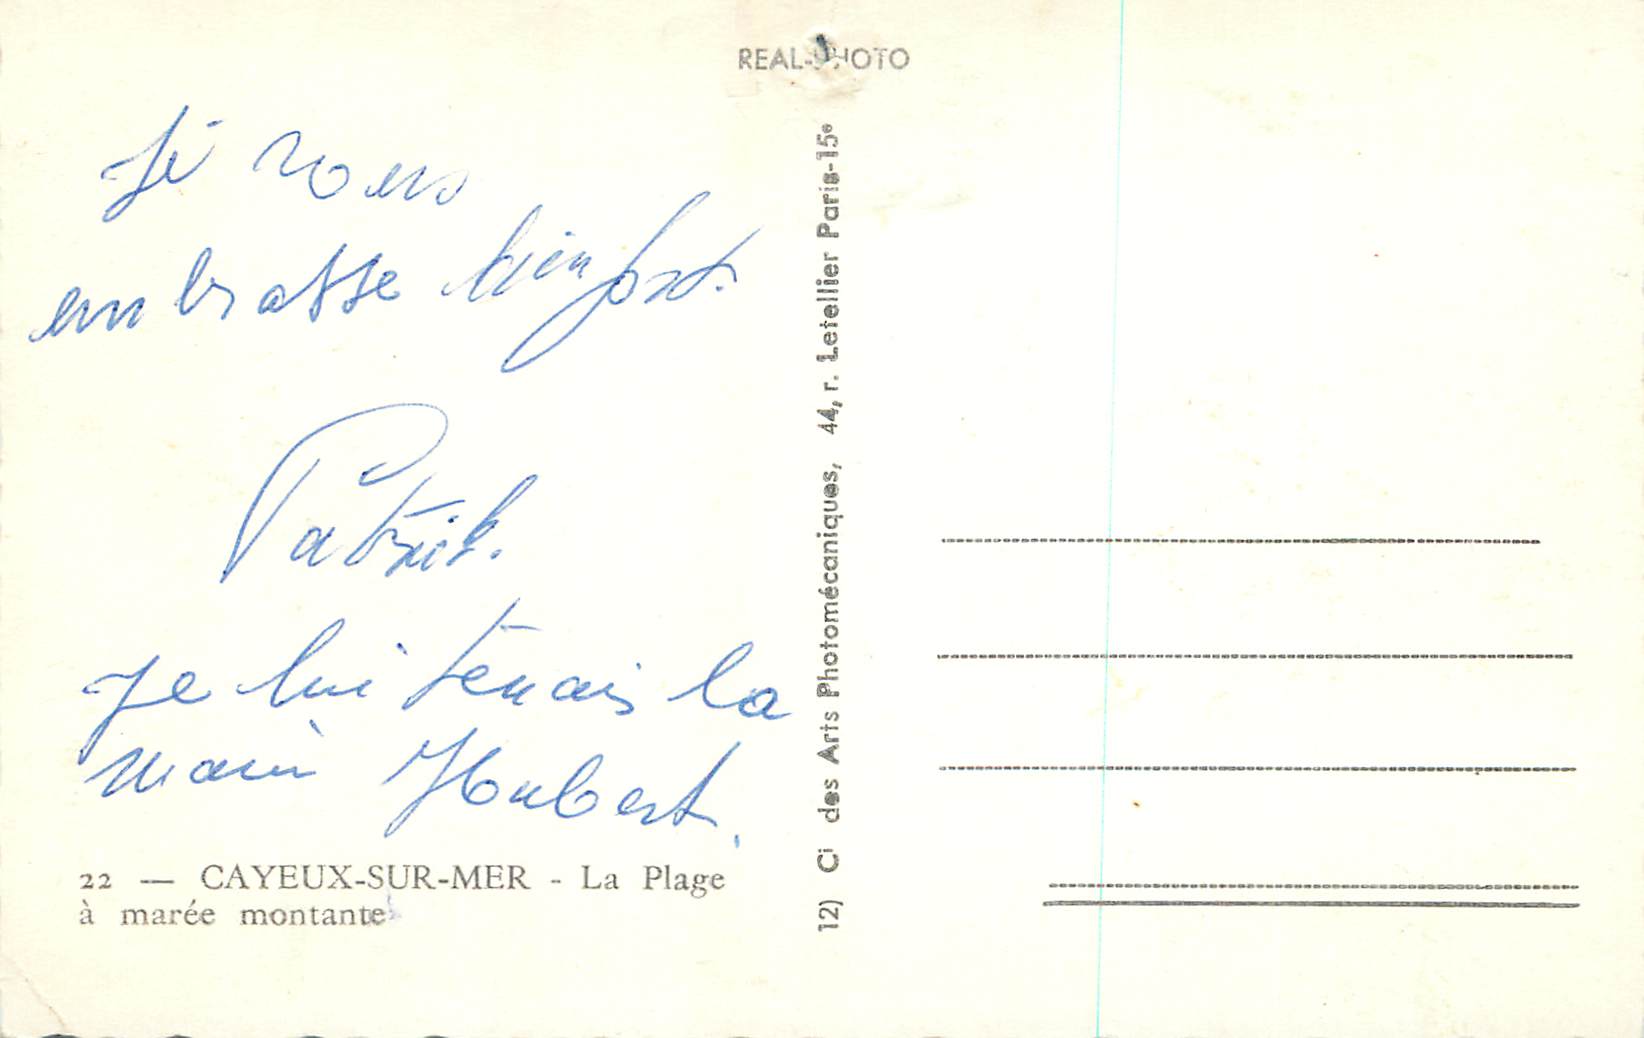 REAL-PHOTO
Je vous
embrasse bien fort.
Patrick.
Je lui tenais la
main Hubert.
22 — CAYEUX-SUR-MER - La Plage
à marée montante
12) Ci des Arts Photomécaniques, 44, r. Letellier Paris-15e